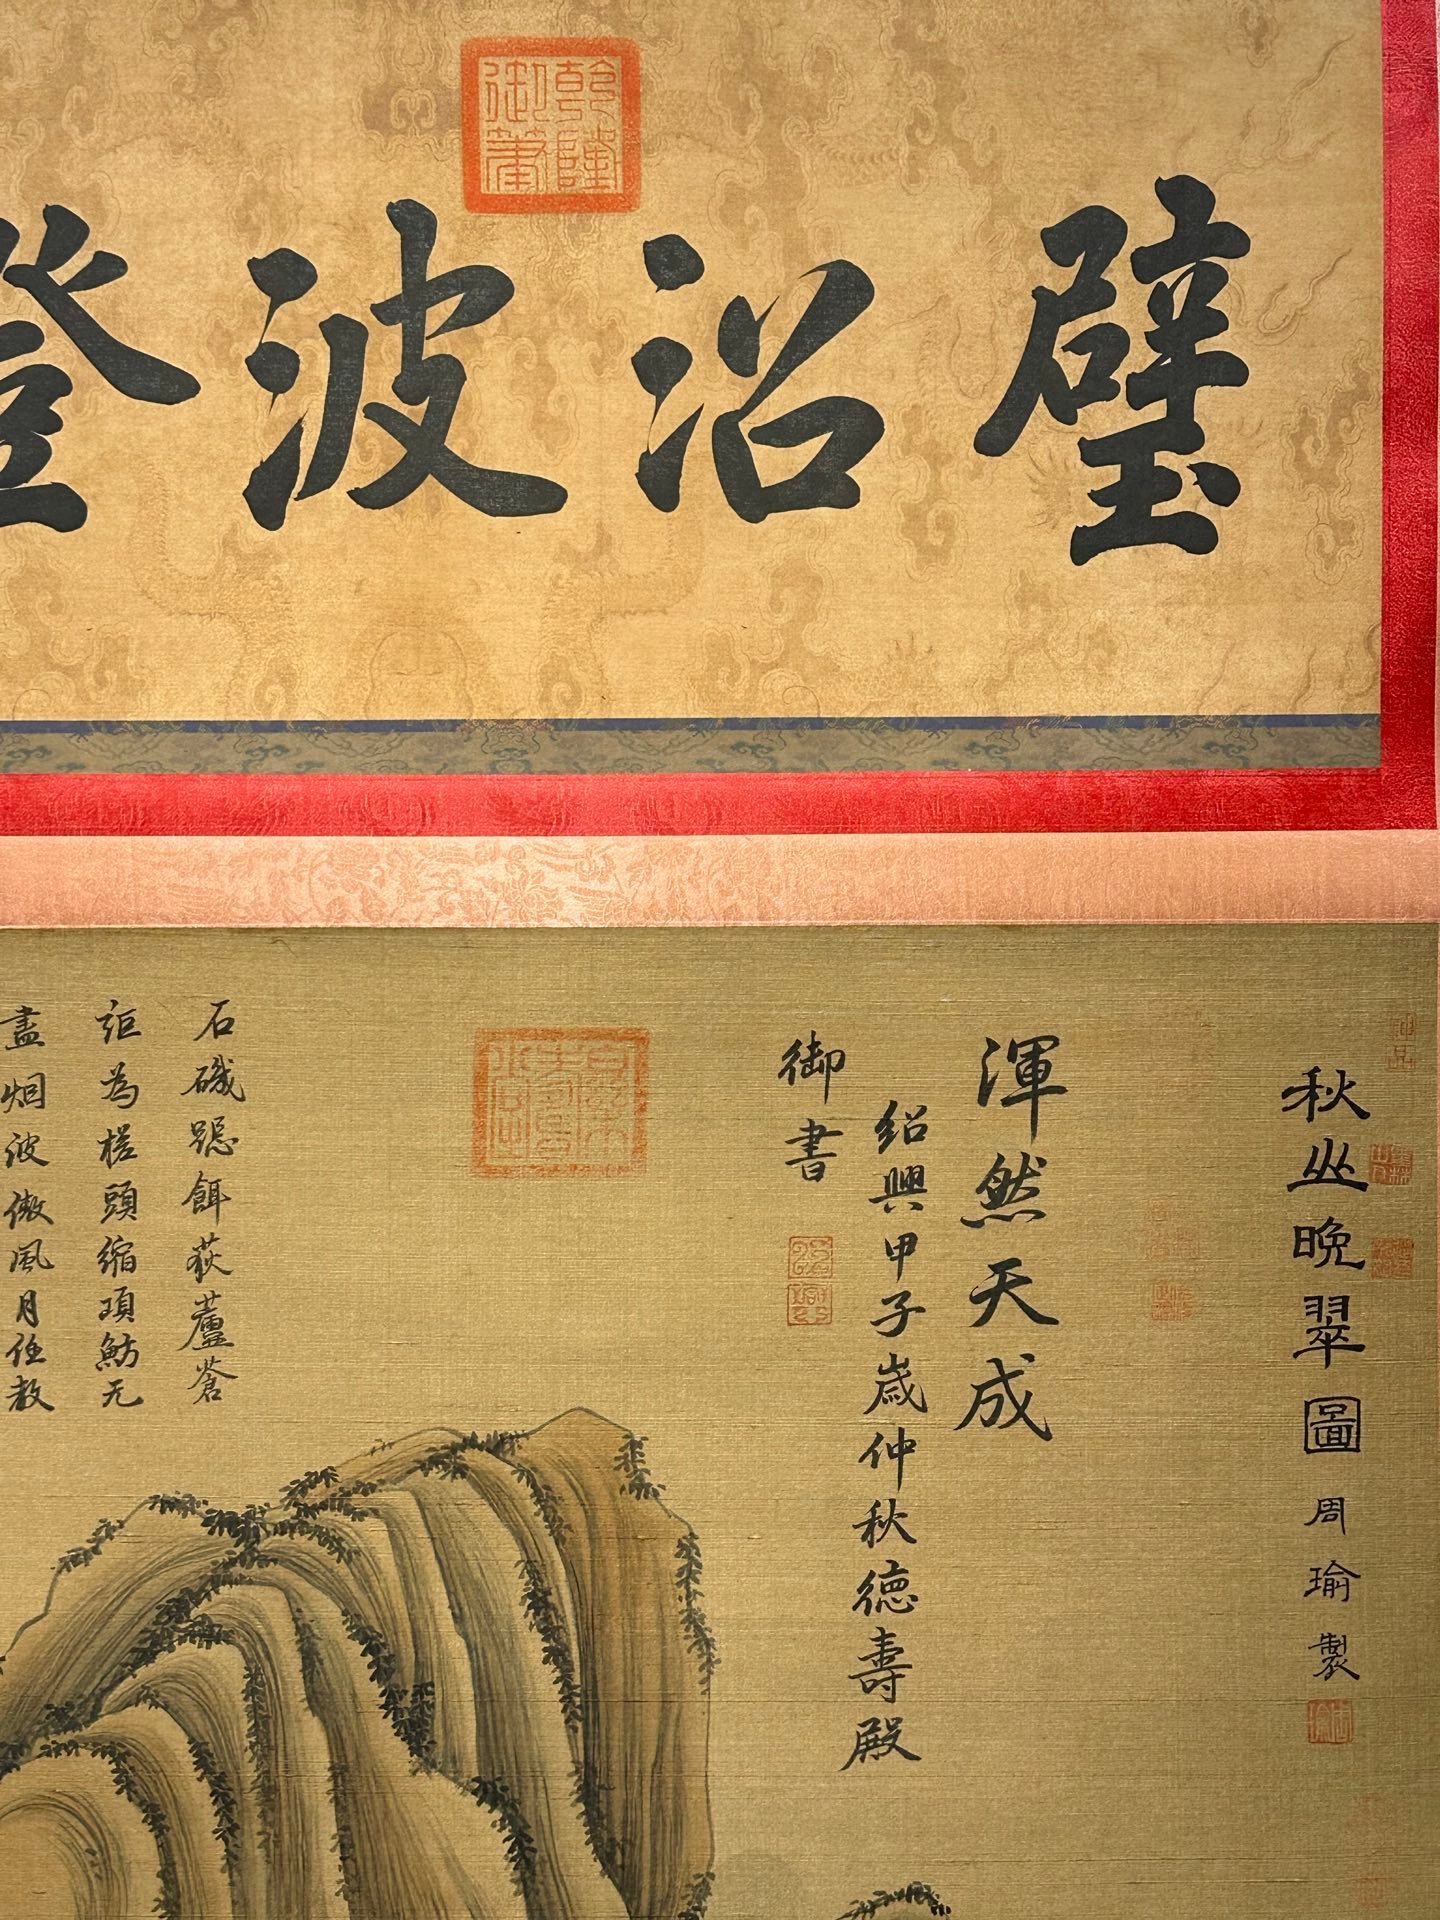 璧沼波澄
乾隆
御筆
秋山晚翠圖 周瑜製
渾然天成
紹興甲子歲仲秋德壽殿
御書
石磯 餌荻蘆蒼
詎為槎頭縮項魴无
盡烟波傲風月任教